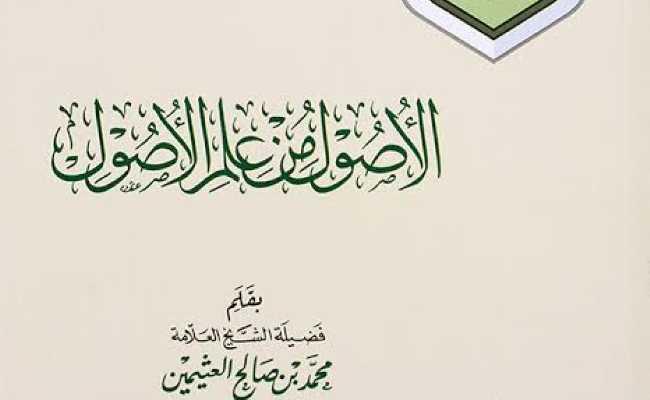 الأُصُولُ مِنْ عِلْمِ الأُصُولِ
بِقَلَمِ
فَضِيلَة الشَّيْخ العَلَّامَة
محمَّد بْن صَالح العثيمين